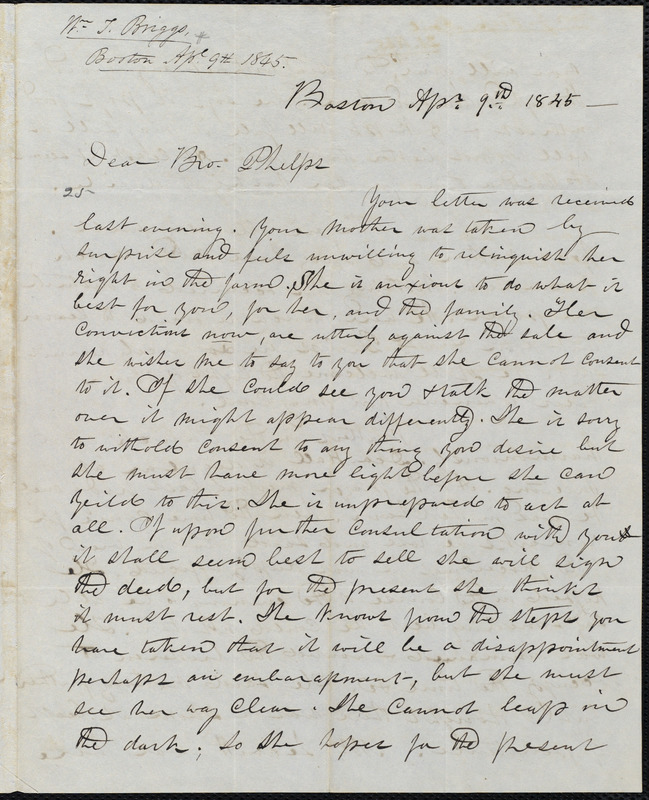 Wm. T. Briggs,
Boston Apl. 9th 1845.
Boston Apr. 9th 1845 —
Dear Bro. Phelps
25
Your letter was received
last evening. Your Mother was taken by
surprise and feels unwilling to relinquish her
right in the farm. She is anxious to do what is
best for you, for her, and the family. Her
convictions now, are utterly against the sale and
she wishes me to say to you that she cannot consent
to it. If she could see you & talk the matter
over it might appear differently. She is sorry
to withold consent to any thing you desire but
she must have more light before she can
yeild to this. She is unprepared to act at
all. If upon further consultation with you
it shall seem best to sell she will sign
the deed, but for the present she thinks
it must rest. She knows from the steps you
have taken that it will be a disappointment
perhaps an embarassment, but she must
see her way clear. She cannot leap in
the dark; so she hopes for the present